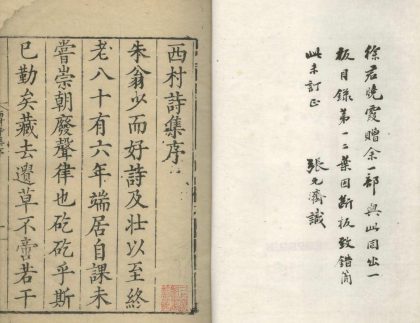 徐君曉霞贈余一部與此同出一
板目錄第一二葉因斷板致錯簡
此未訂正 張元濟識
西村詩集序
朱翁少而好詩及壯以至終
老八十有六年端居自課未
嘗崇朝廢聲律也矻矻乎斯
已勤矣藏去遺草不啻若干